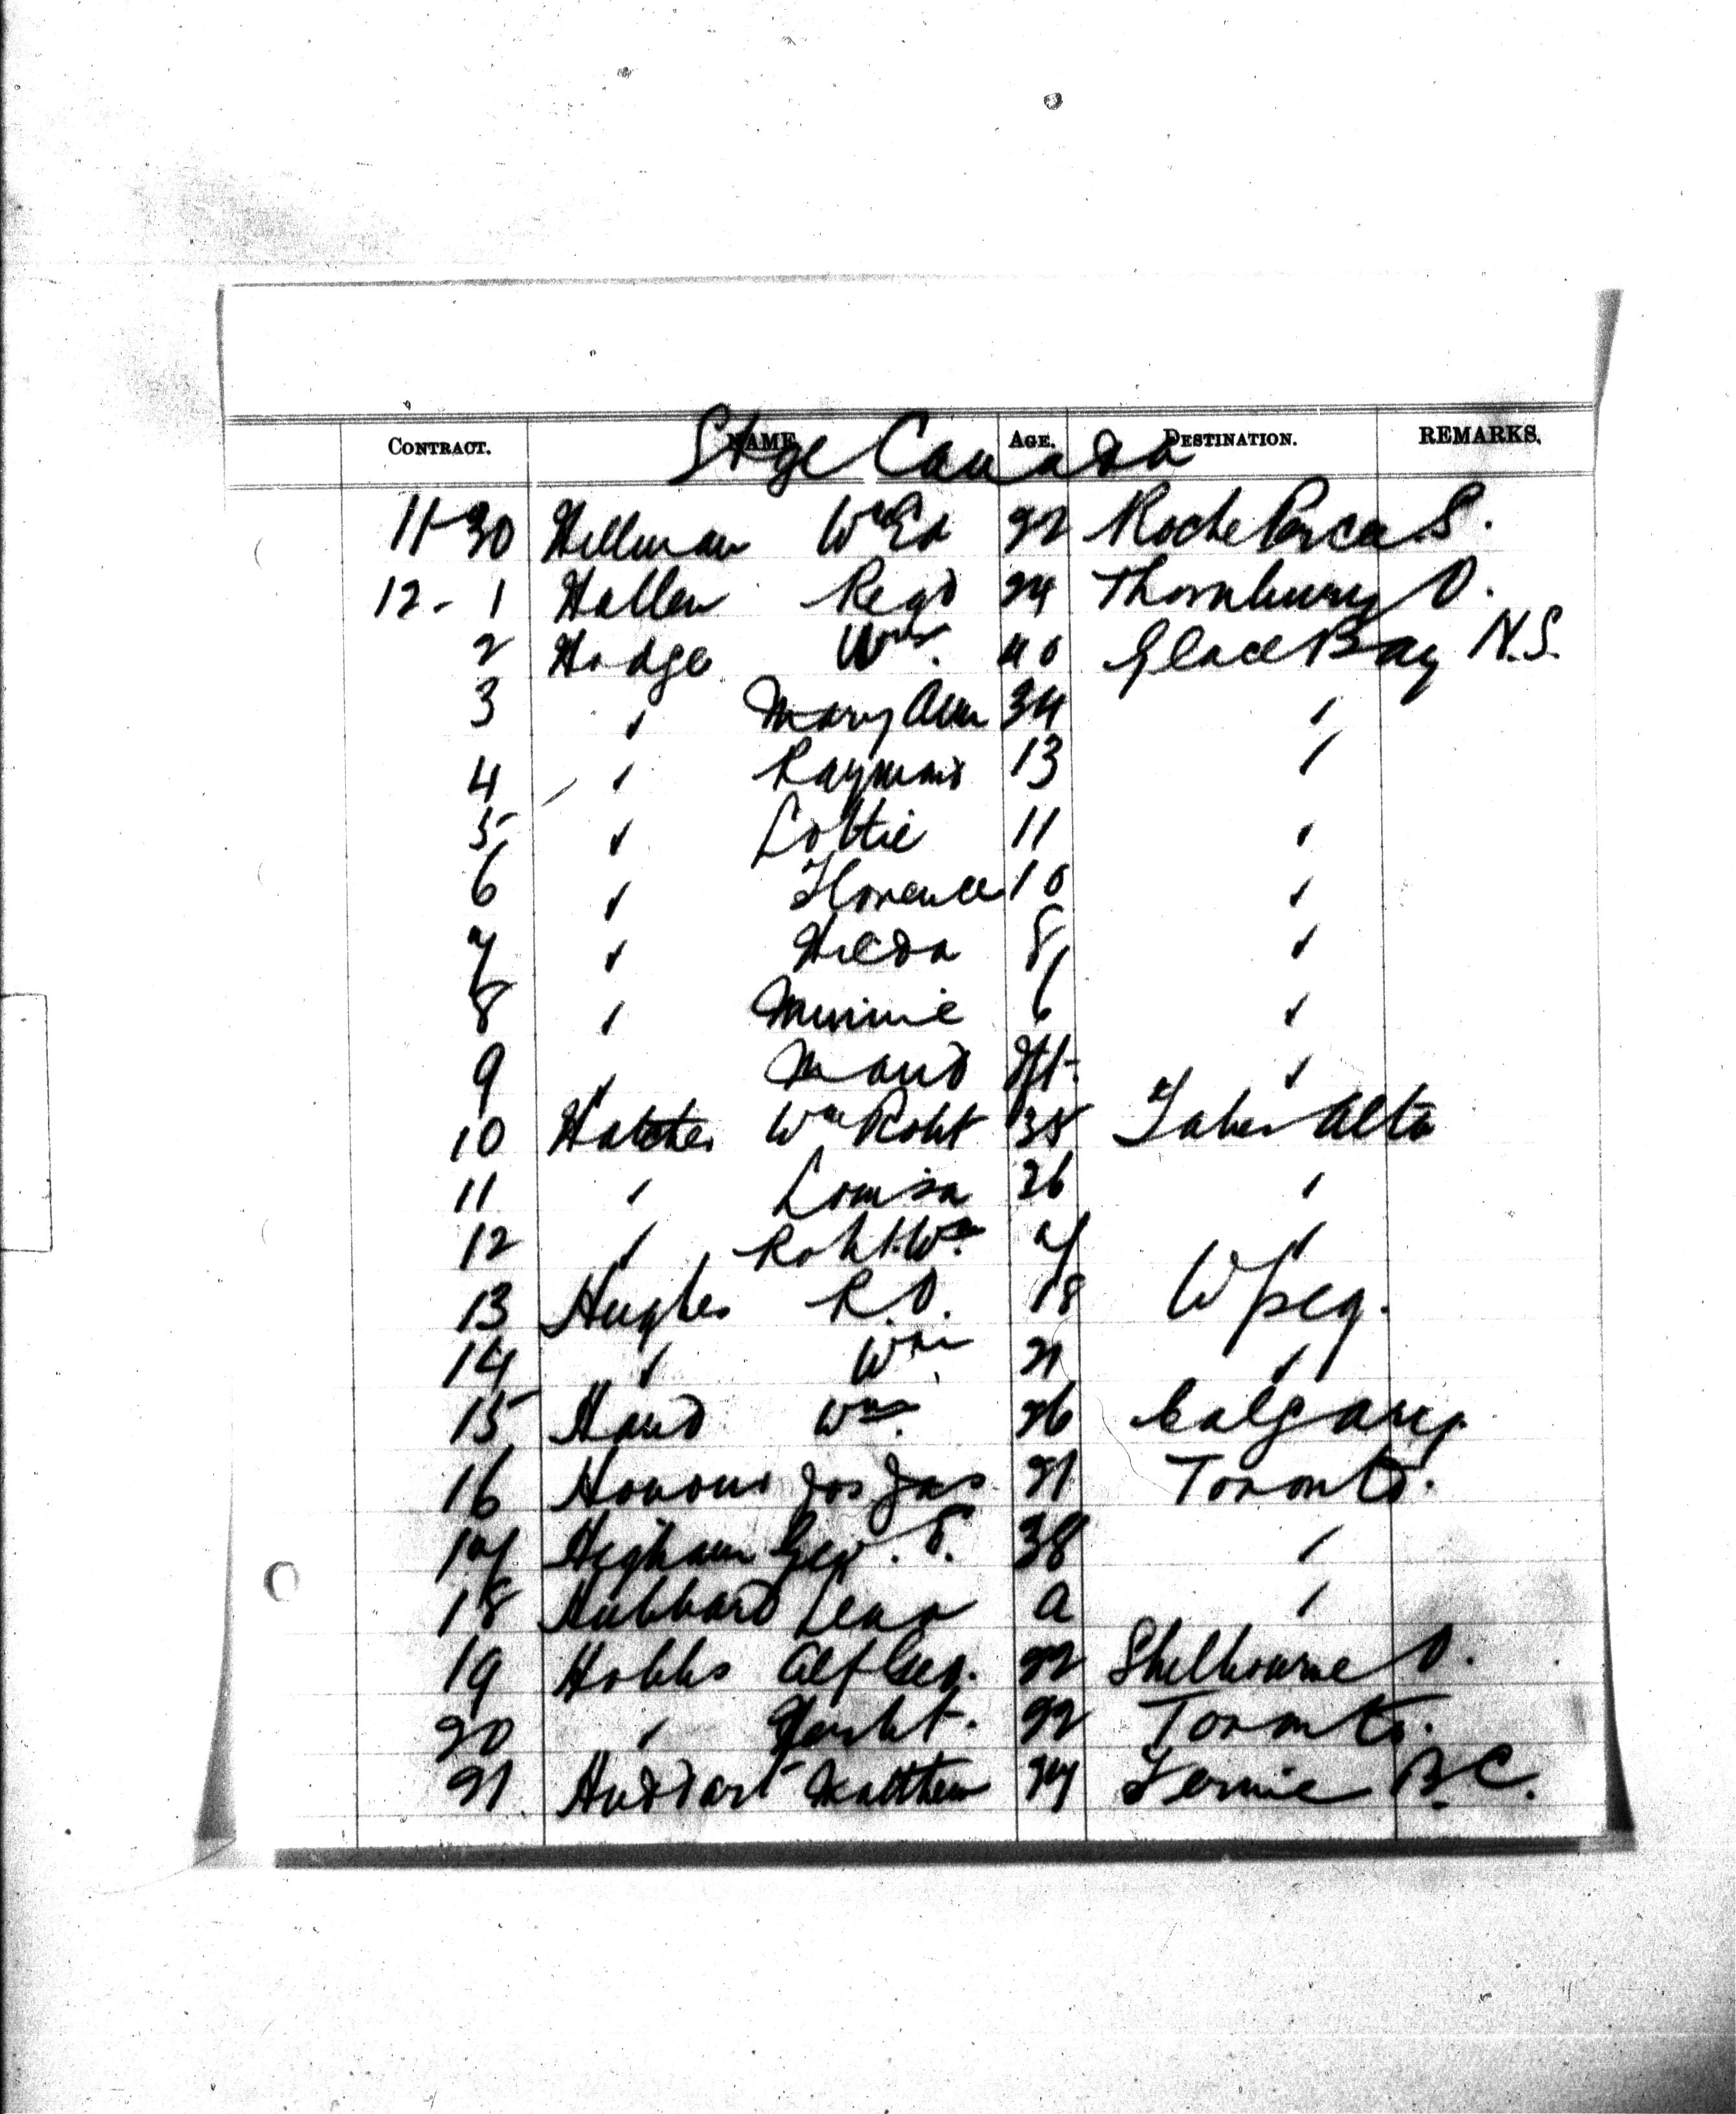 Stge Canada
CONTRACT. NAME AGE. DESTINATION. REMARKS.
11-30 Hellman Wm Ed 22 Roche Percee S.
12-1 Hallen Regd 24 Thornbury O.
2 Hodge Wm. 40 Glace Bay N.S.
3 " Mary Ann 34 "
4 " Raymond 13 "
5 " Lottie 11 "
6 " Florence 10 "
7 " Hilda 8 "
8 " Minnie 6 "
9 " Maud Inft. "
10 Hatcher Wm Robt 38 Taber Alta
11 " Louisa 26 "
12 " Robt. Wm. "
13 Hughes R.O. 18 Wpeg.
14 " Wm 21 "
15 Hand Wm. 26 Calgary.
16 Honour Jos Jas 21 Toronto.
17 Higham Geo. S. 38 "
18 Hubbard Lena a "
19 Hobbs Alf Geo. 22 Shelbourne O.
20 " Herbt. 22 Toronto.
21 Huddart Matthew 24 Fernie B.C.